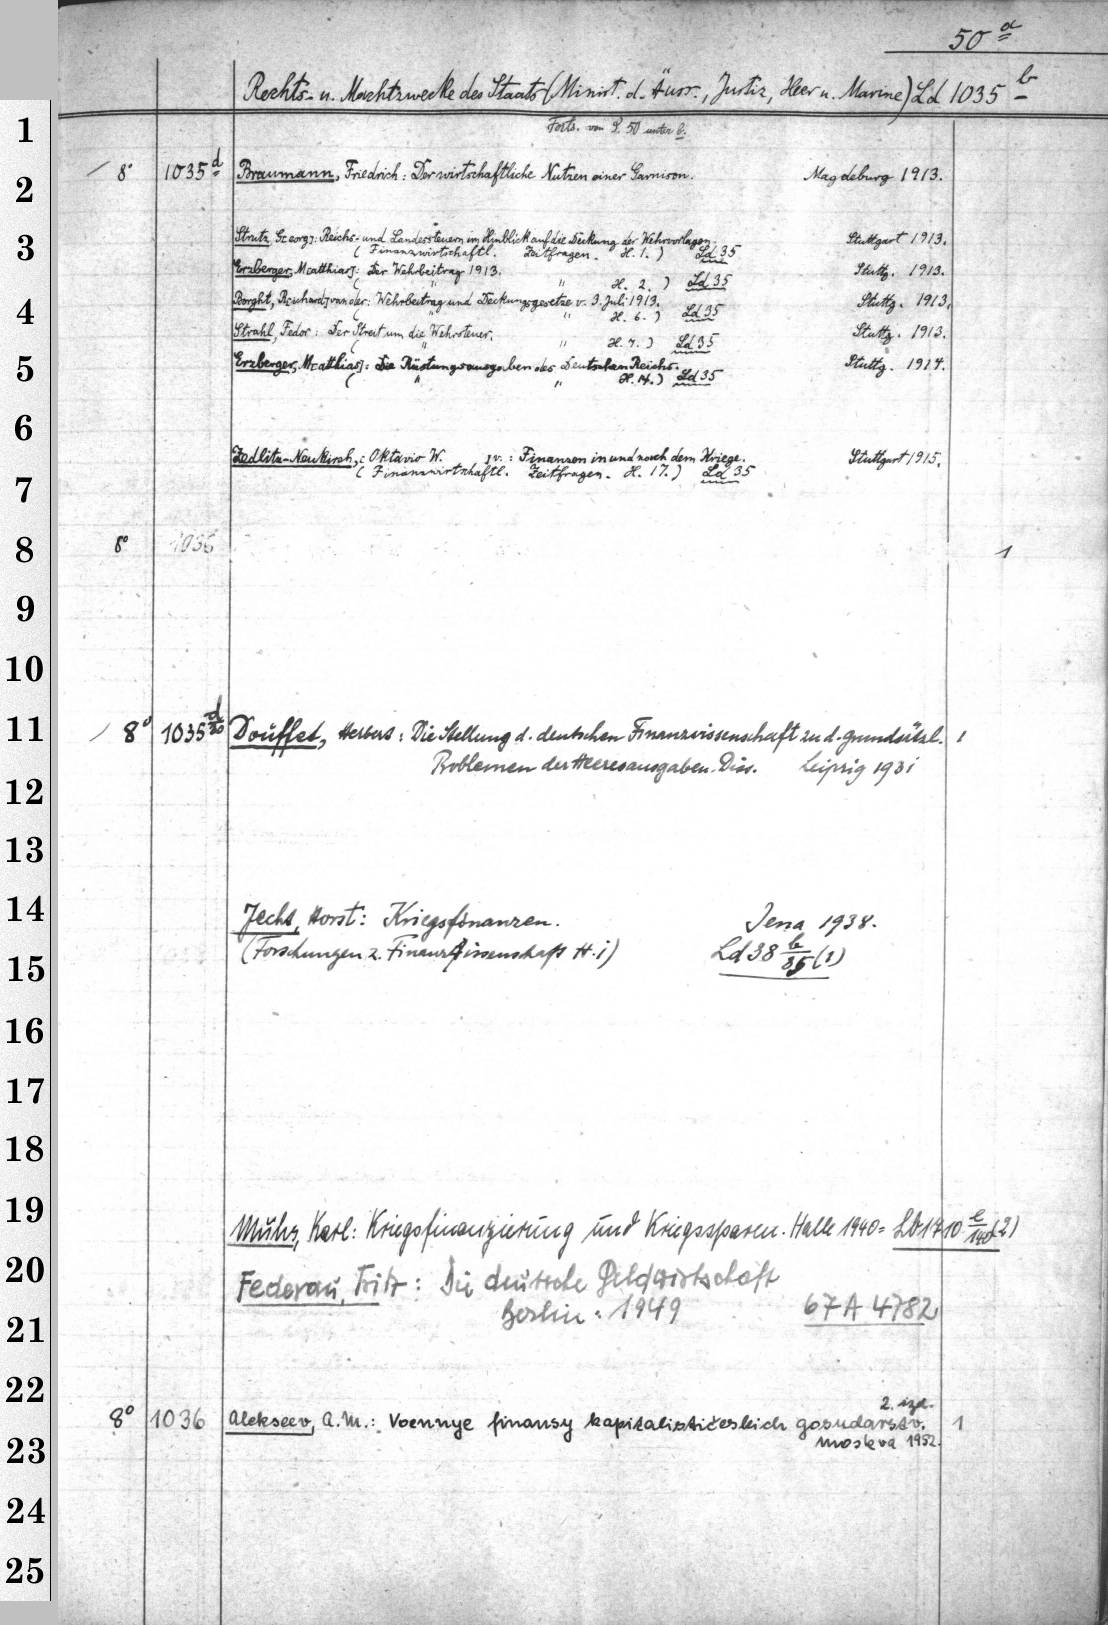 50 a
Rechts- u. Machtzwecke des Staats (Minist. d. Äuss., Justiz, Heer u. Marine) Ld 1035 b
Forts. von S. 50 unter b.
1
2
8° 1035 d Braumann, Friedrich: Der wirtschaftliche Nutzen einer Garnison. Magdeburg 1913.
3
Strutz, Georg: Reichs- und Landessteuern im Hinblick auf die Deckung der Wehrvorlagen. Stuttgart 1913.
(Finanzwirtschaftl. Zeitfragen. H. 1.) Ld 35
Erzberger, M[atthias]: Der Wehrbeitrag 1913. Stuttg. 1913.
( " " H. 2. ) Ld 35
4
Borght, R[ichard] van der: Wehrbeitrag und Deckungsgesetze v. 3. Juli 1913. Stuttg. 1913.
( " " H. 6. ) Ld 35
Strahl, Fedor: Der Streit um die Wehrsteuer. Stuttg. 1913.
( " " H. 7. ) Ld 35
5
Erzberger, M[atthias]: Die Rüstungsausgaben des Deutschen Reichs. Stuttg. 1914.
( " " H. 14.) Ld 35
6
Zedlitz-Neukirch, Oktavio W. v.: Finanzen in und nach dem Kriege. Stuttgart 1915.
(Finanzwirtschaftl. Zeitfragen. H. 17.) Ld 35
7
8
8° 1036 1
9
10
11
8° 1035 d/20 Douffet, Herbert: Die Stellung d. deutschen Finanzwissenschaft zu d. grundsätzl. 1
Problemen der Heeresausgaben. Diss. Leipzig 1931
12
13
14
Jecht, Horst: Kriegsfinanzen. Jena 1938.
(Forschungen z. Finanzwissenschaft H. 1) Ld 38 b/85 (1)
15
16
17
18
19
Muhs, Karl: Kriegsfinanzierung und Kriegssparen. Halle 1940 = Lb 1710 l/140 (2)
20
Federau, Fritz: Die deutsche Geldwirtschaft
Berlin: 1949 67 A 4782
21
22
2. izd.
8° 1036 Alekseev, A.M.: Voennye finansy kapitalističeskich gosudarstv. 1
Moskva 1952.
23
24
25